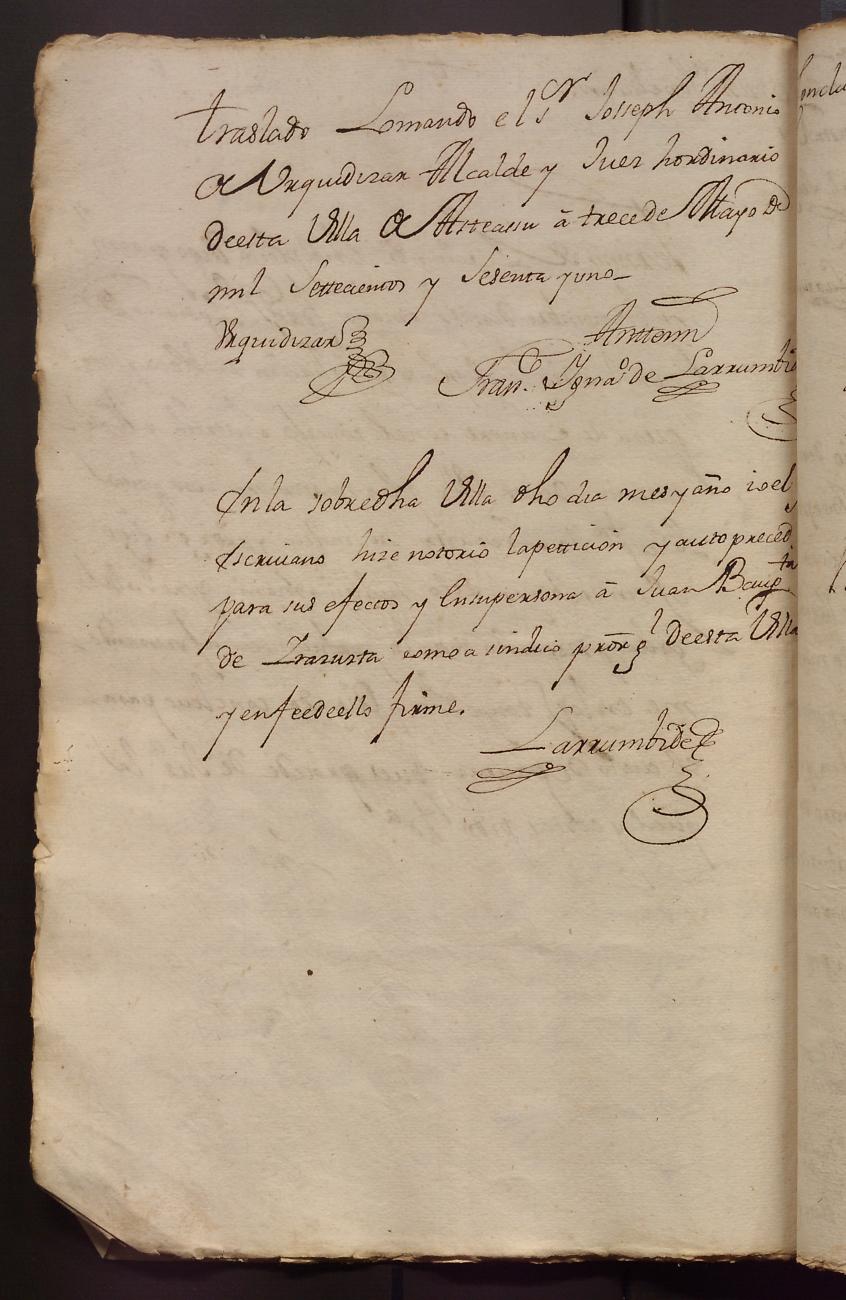 traslado Lomando el S.r Josseph Antonio
de Urquidizar Alcalde y Juez hordinario
deesta Villa de Asteassu â trecede Mayo de
mil Settecientos y Sesenta yuno
Urquidizar Anttemi
Fran.co Ygna.o de Larrumbide
En la sobredha Villa dho dia mes y año ioel
Escriuano hize notorio lapettición y autopreced
para sus efectos y Ensupersona â Juan Baup.ta
de Irazusta como a sindico prōr g.l deesta Villa
yenfeedeello firme.
Larrumbide